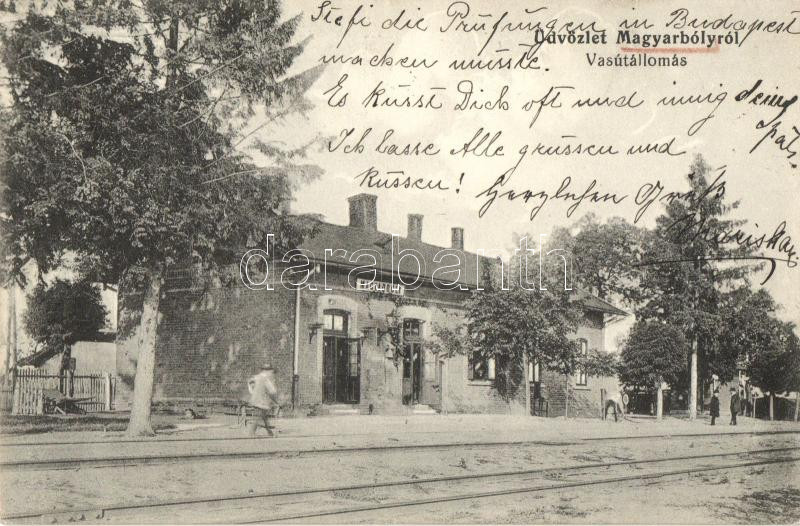 Stefi die Prüfungen in Budapest
machen müsste.
Üdvözlet Magyarbólyról
Vasútállomás
Es küsst Dich oft und innig deine
Ich lasse Alle grüssen und
küssen! Herzlichen Gruß
darabanth